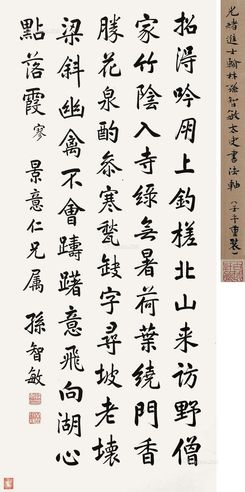 光緒進士翰林孫智敏太史書法軸（壬午重裝）
招淂吟朋上釣槎北山来訪野僧
家竹陰入寺綠無暑荷葉繞門香
勝花泉酌叅寒甃缺字尋坡老壞
梁斜幽禽不會躊躇意飛向湖心
點落霞 寥 景意仁兄属 孫智敏